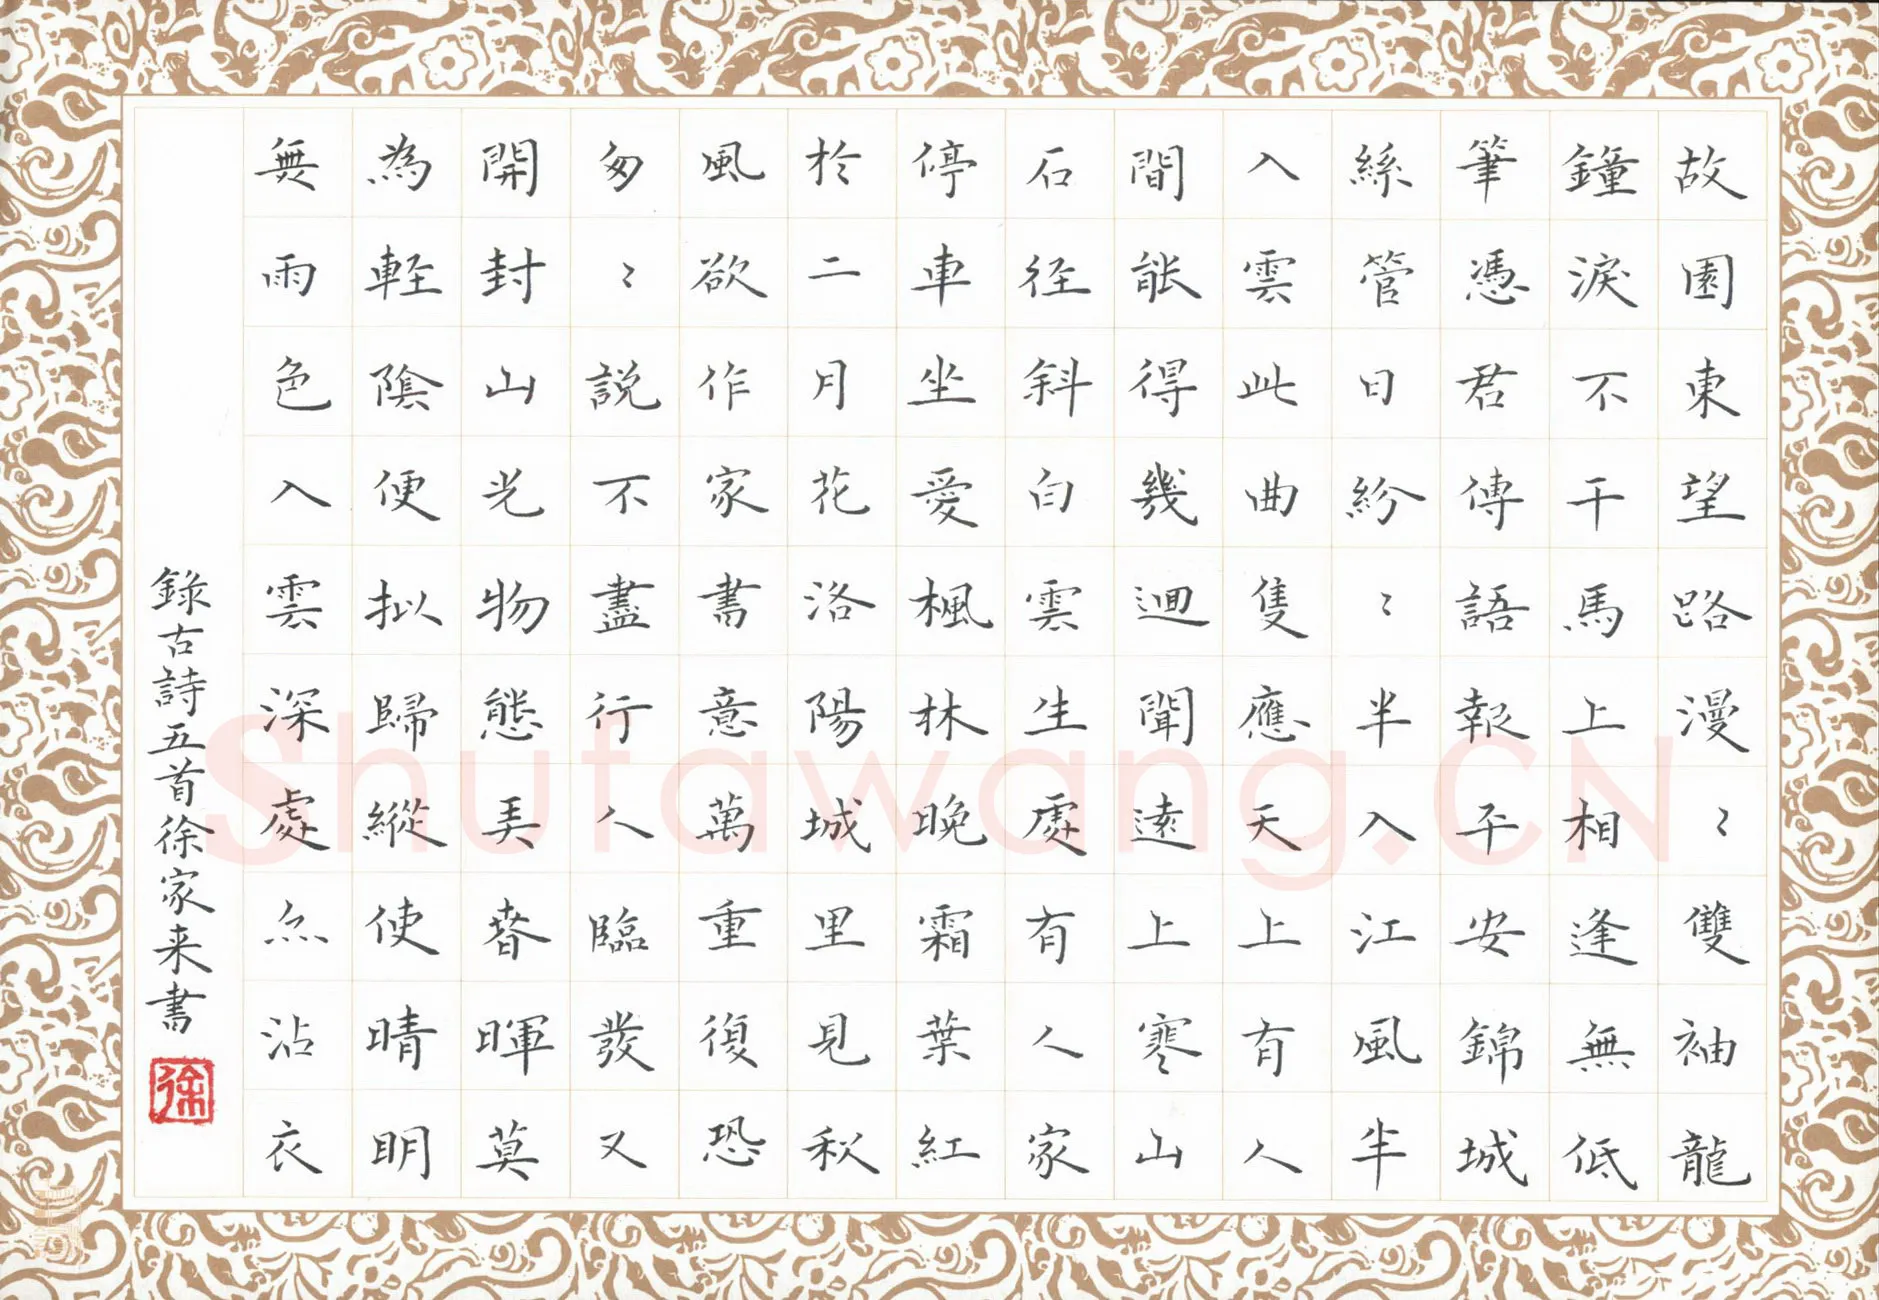 故園東望路漫〻雙袖龍
鐘淚不干馬上相逢無低
筆憑君傳語報平安錦城
絲管日紛〻半入江風半
入雲此曲隻應天上有人
間能得幾迴聞遠上寒山
石径斜白雲生處有人家
停車坐愛楓林晚霜葉紅
於二月花洛陽城里見秋
風欲作家書意萬重復恐
匆〻説不盡行人臨發又
開封山光物態弄春暉莫
為軽陰便拟歸縱使晴明
無雨色入雲深處亦沾衣
錄古詩五首徐家来書
徐
Shufawang.CN